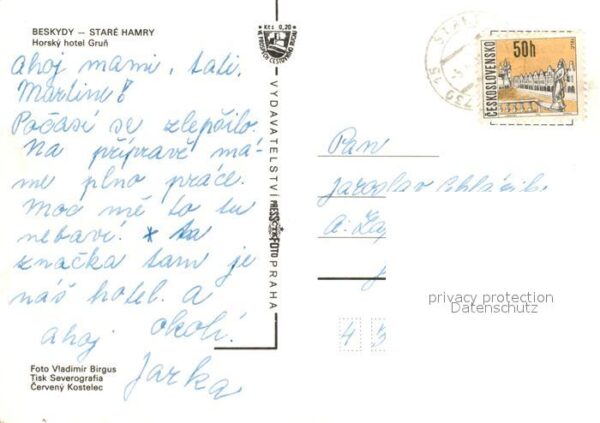 BESKYDY — STARÉ HAMRY
Horský hotel Gruň
ahoj mami, tati,
Martine!
Počasí se zlepšilo.
Na přípravě má-
me plno práce.
Moc mě to tu
nebaví. * ta
značka tam je
náš hotel. a
okolí.
ahoj
Jarka
Foto Vladimír Birgus
Tisk Severografia
Červený Kostelec
Kčs 0,20
VYDAVATELSTVÍ PRESSFOTO PRAHA
739 15
ČESKOSLOVENSKO
50h
Pan
Jaroslav
A.
4 3
privacy protection
Datenschutz